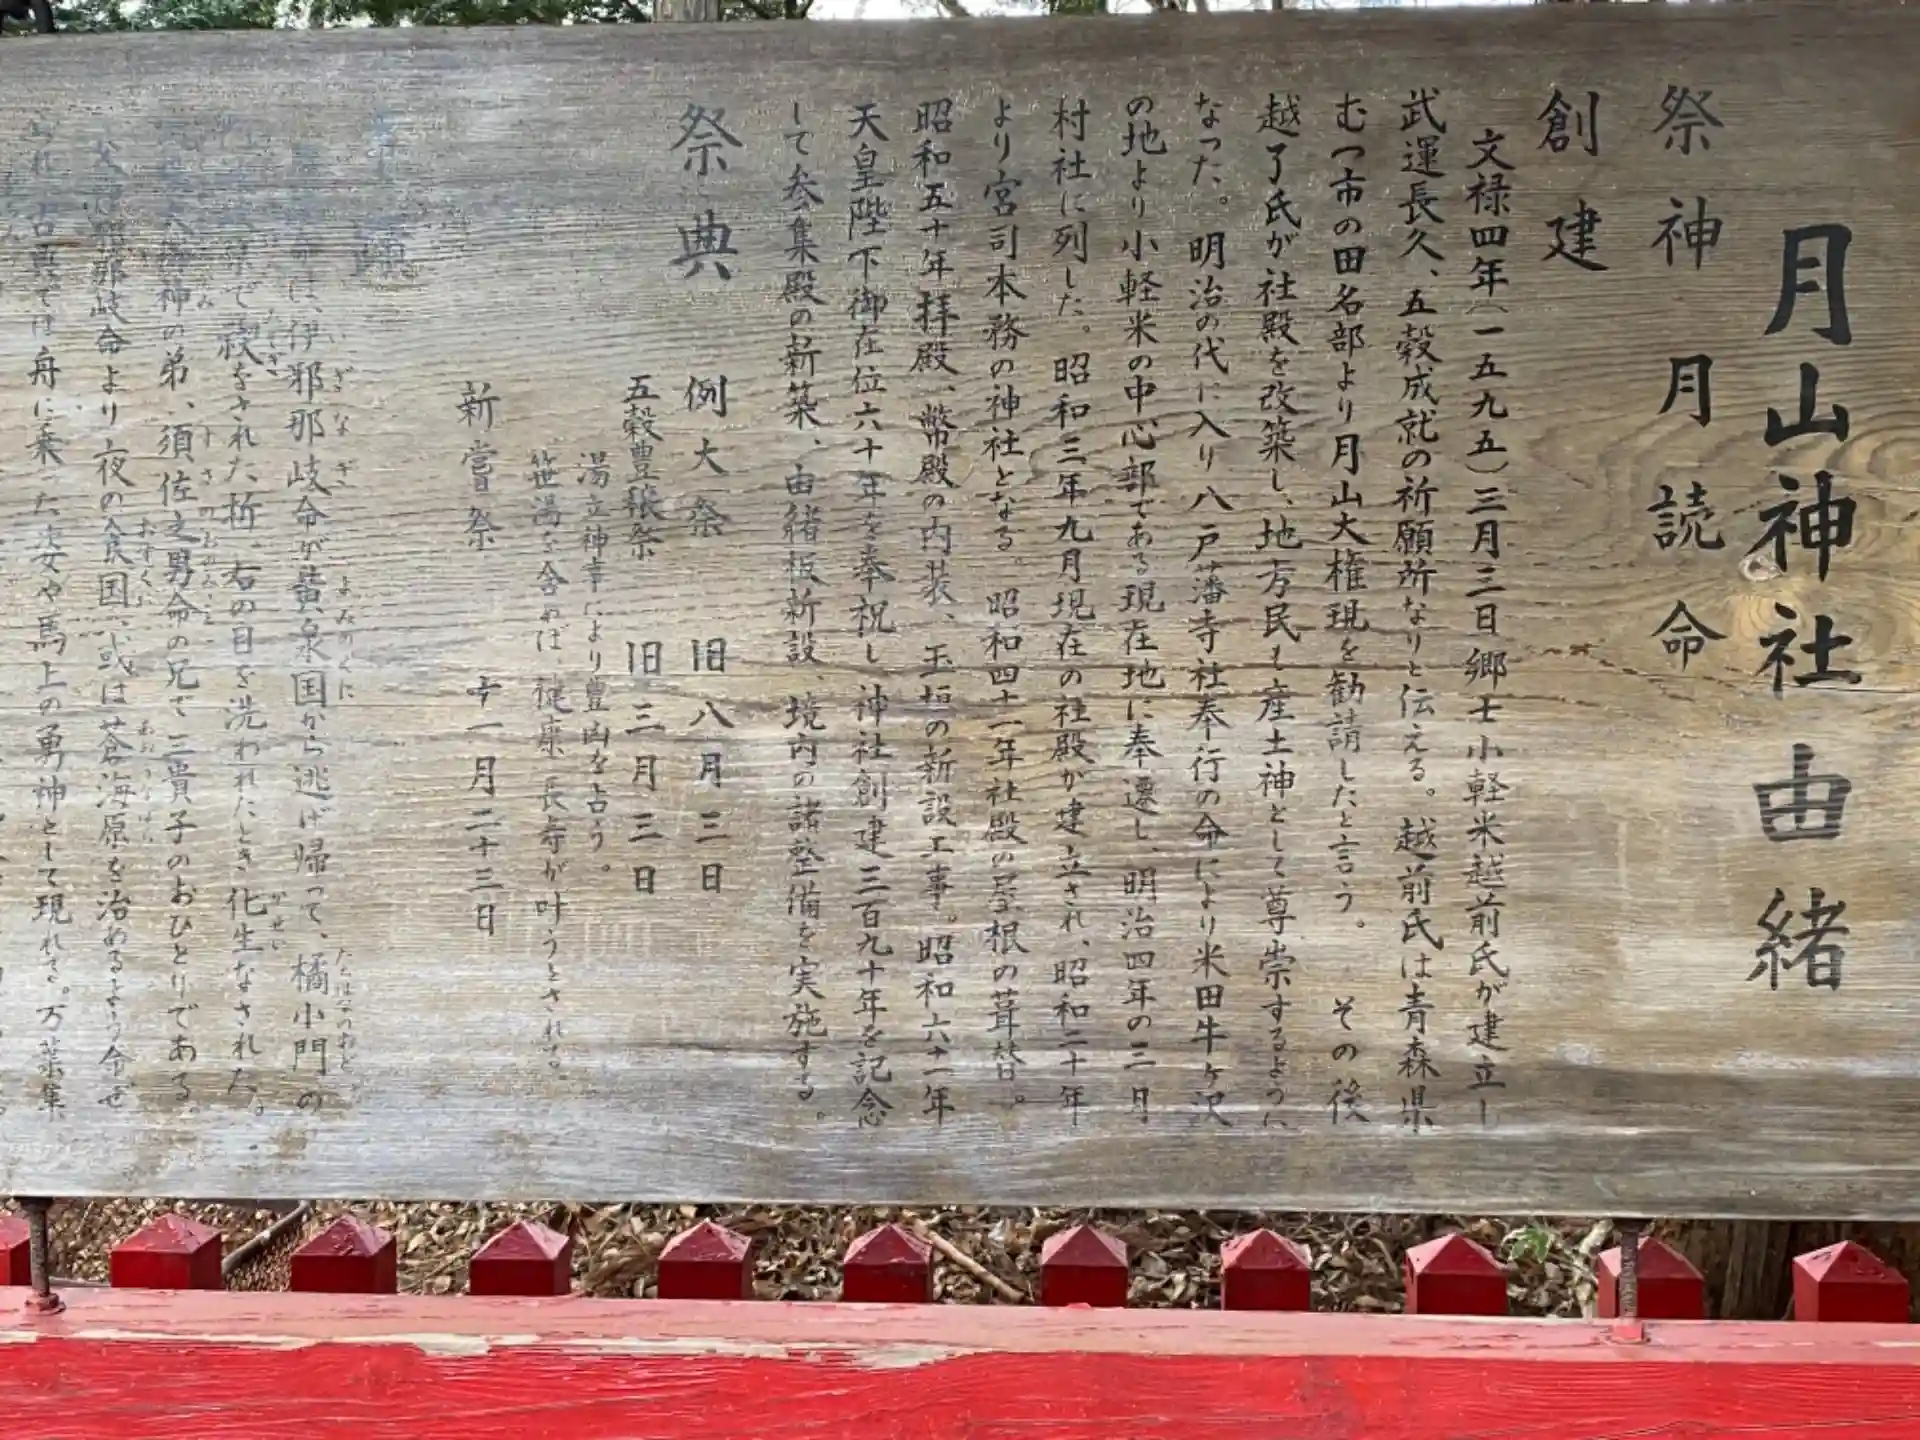 月山神社由緒
祭神 月読命
創建
文禄四年(一五九五)三月三日郷士小軽米越前氏が建立し
武運長久、五穀成就の祈願所なりと伝える。越前氏は青森県
むつ市の田名部より月山大権現を勧請したと言う。その後
越了氏が社殿を改築し、地方民も産土神として尊崇するように
なった。明治の代に入り八戸藩寺社奉行の命により米田牛ヶ沢
の地より小軽米の中心部である現在地に奉遷し、明治四年の三月
村社に列した。昭和三年九月現在の社殿が建立され、昭和二十年
より宮司本務の神社となる。昭和四十一年社殿の屋根の葺替。
昭和五十年拝殿、幣殿の内装、玉垣の新設工事。昭和六十一年
天皇陛下御在位六十年を奉祝し神社創建三百九十年を記念
して参集殿の新築、由緒板新設、境内の諸整備を実施する。
祭典
例大祭 旧八月三日
五穀豊穣祭 旧三月三日
湯立神事により豊凶を占う。
笹湯を含めば、健康長寿が叶うとされる。
新嘗祭 十一月二十三日
は、伊邪那岐命が黄泉国から逃げ帰って、橘小門の
いざなぎ よみのくに たちばなのおど
で禊をされた折、右の目を洗われたとき化生なされた。
みそぎ かせい
神の弟、須佐之男命の兄で三貴子のおひとりである。
み すさのおのみこと
邪那岐命より夜の食国、或は蒼海原を治めるよう命ぜ
おすくに あおうなばら
られ 古典では舟に乗った姿や馬上の勇神として現れる。万葉集